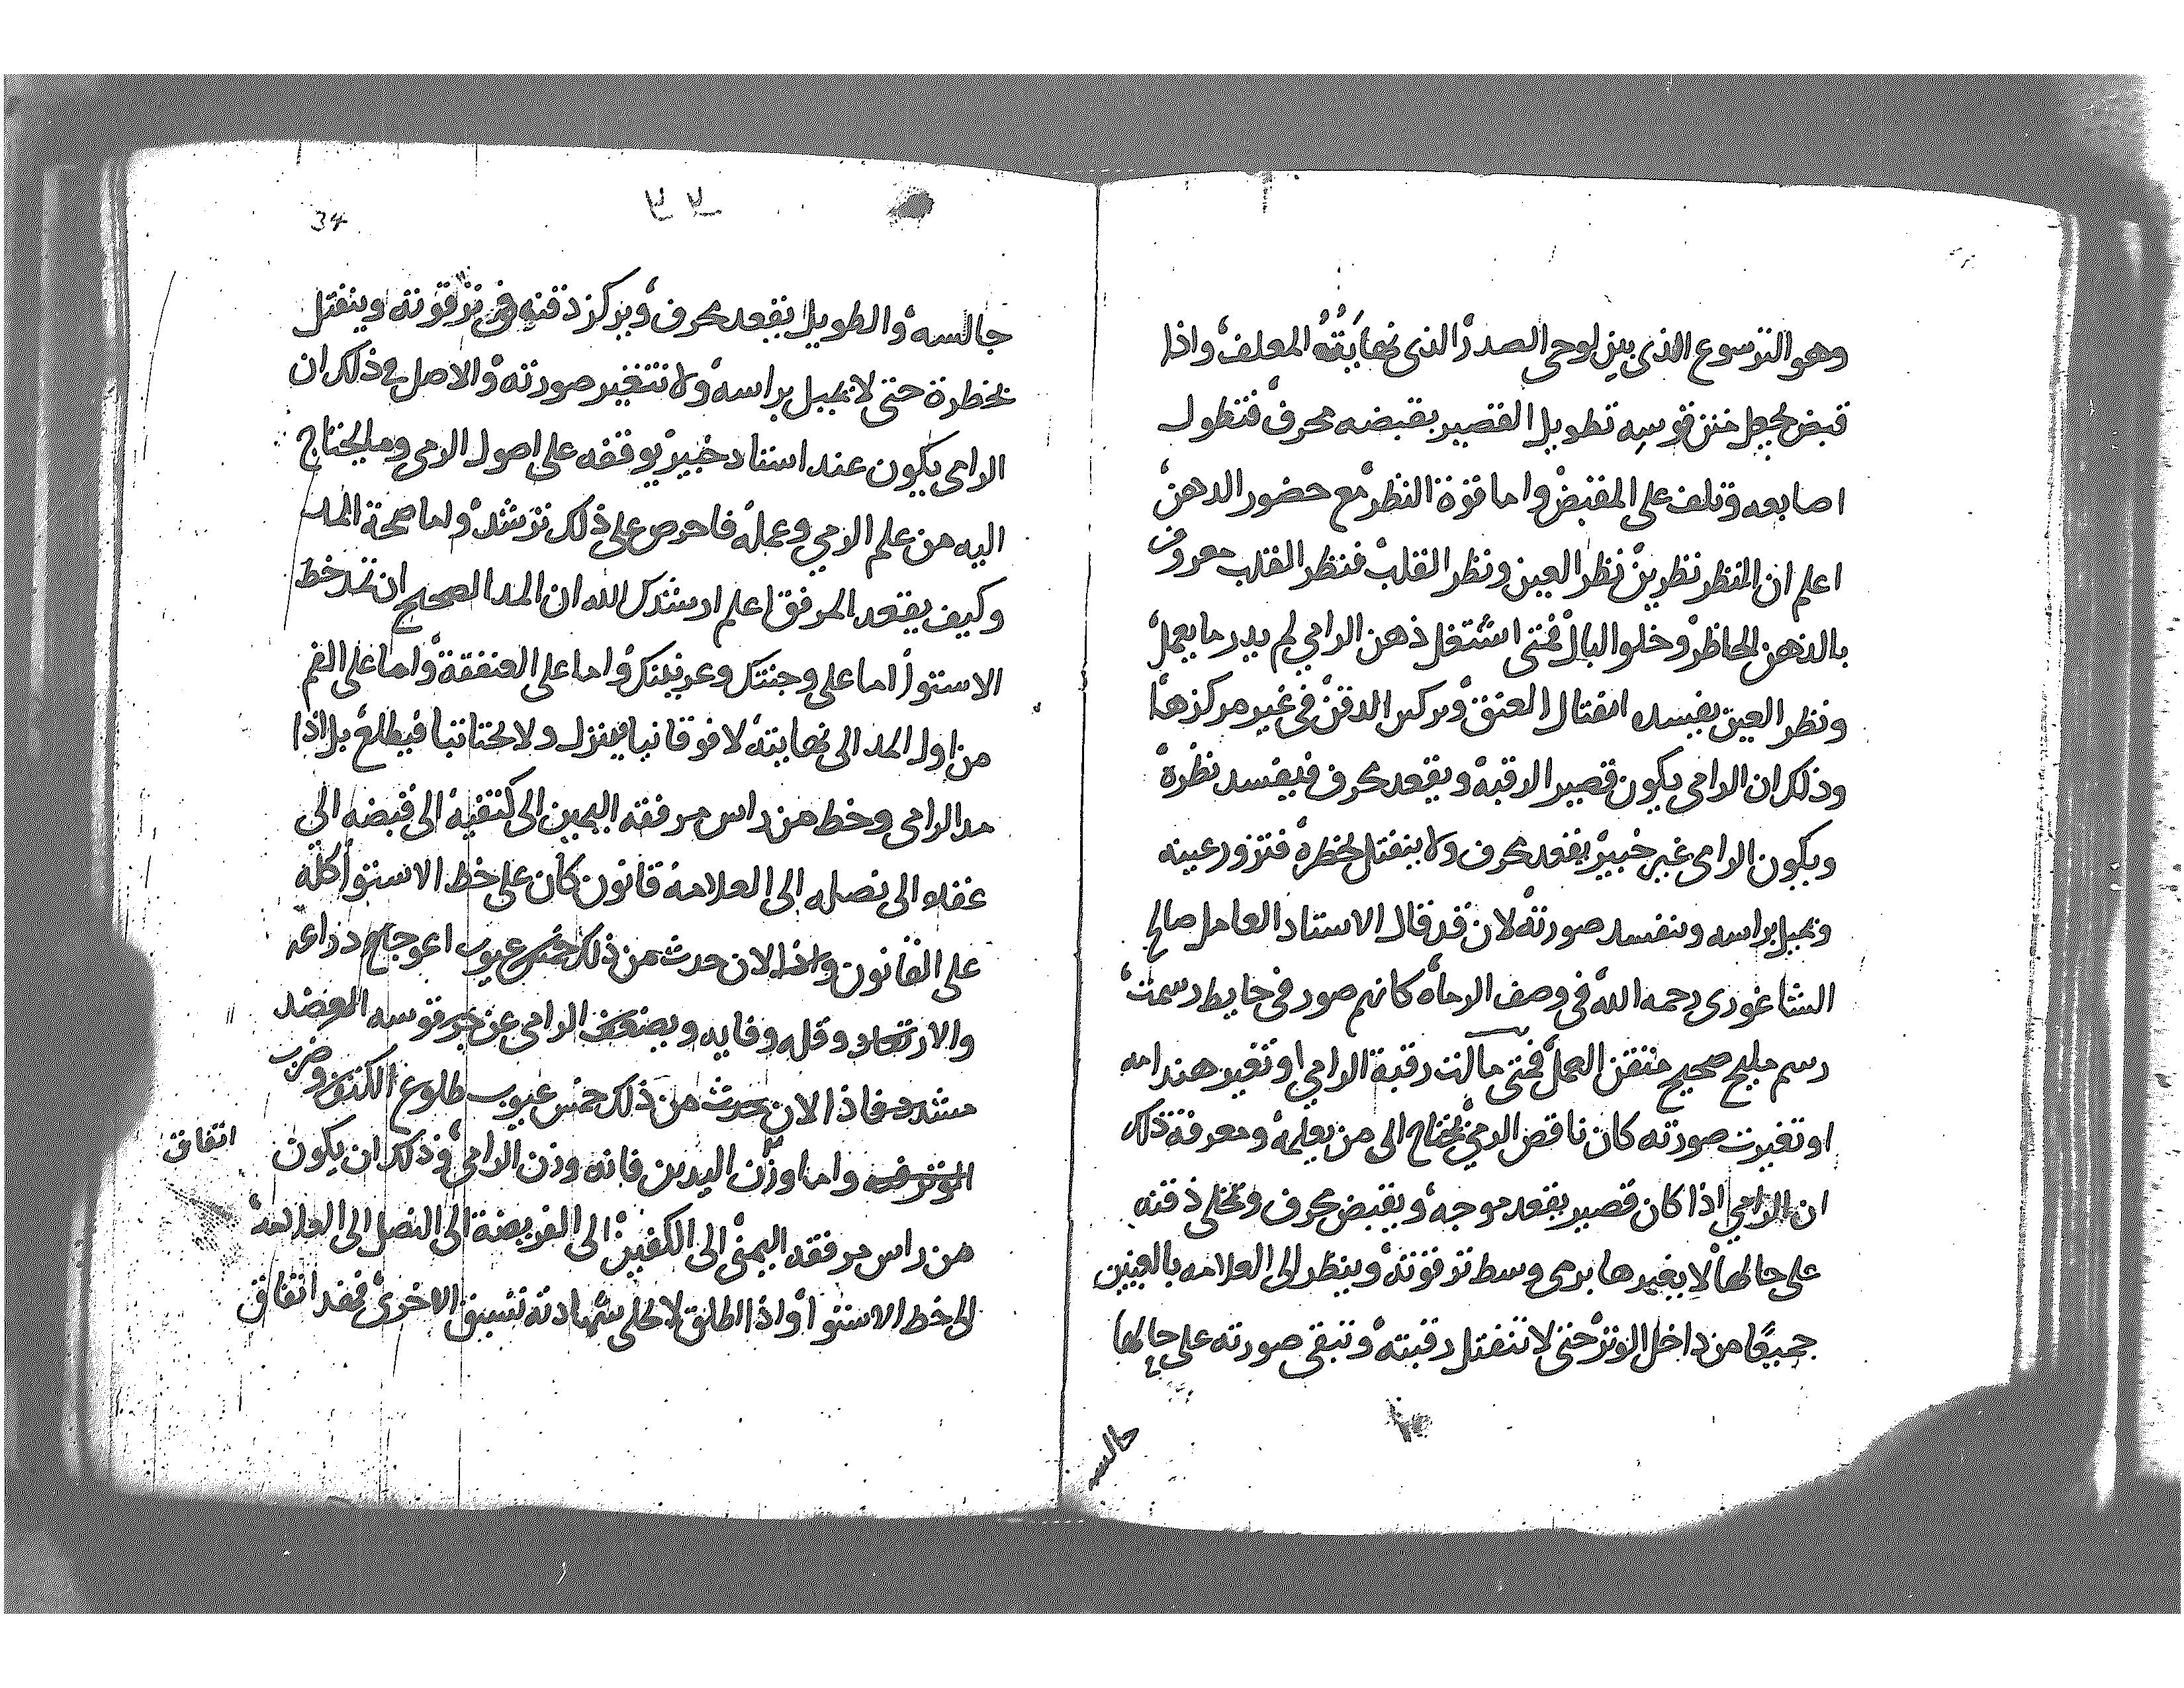 وهو الترسوع الذي بين لوحي الصدر الذي نهايته المعلف واذا
قبض يجعل متن قوسه تطويل القصير بقبضه محرف فتطول
اصابعه وتلف على المقبض واما قوة النظر مع حضور الدهن
اعلم ان النظر نظرين نظر العين ونظر القلب فنظر القلب معروف
بالذهن الحاظر وخلو البال فمتى اشتغل ذهن الرامي لم يدر ما يعمل
ونظر العين يفسده انفتال العنق وتركيز الدقن في غير مركزها
وذلك ان الرامي يكون قصير الرقبه ويقعد محرف فيفسد نظره
ويكون الرامي غير خبير يقعد محرف ولا ينفتل بخطره فتزور عينه
ويميل براسه وتفسد صورته لان قد قال الاستاد العامل صالح
الشاغوري رحمه الله في وصف الرماه كانهم صور في حايط رسمت
رسم مليح صحيح متقن العمل فمتى مالت رقبة الرامي او تغير هندامه
او تغيرت صورته كان ناقص الرمي يحتاج الى من يعلمه ومعرفة ذلك
ان الرامي اذا كان قصير يقعد موجه ويقبض محرف وتخلى ذقنه
على حالها لا يغيرها يرمي وسط ترقوته وينظر الى العلامه بالعينين
جميعًا من داخل الوتر حتى لا تنفتل رقبته وتبقى صورته على حالها
جالسه
٣٣
34
جالسه والطويل يقعد محرف ويركز ذقنه في ترقوته وينفتل
بخطرة حتى لا يميل براسه ولا تتغير صورته والاصل في ذلك ان
الرامي يكون عند استاد خبير يوقفه على اصول الرمي وما يحتاج
اليه من علم الرمي وعمله فاحرص على ذلك ترشد واما صحة المد
وكيف يقعد المرفق اعلم ارشدك الله ان المد الصحيح ان تمد خط
الاستوا اما على وجنتك وعرنينك واما على العنفقة واما على الفم
من اول المد الى نهايته لا فوقانيا فينزل ولا تحتانيا فيطلع بل اذا
مد الرامي وخط من راس مرفقه اليمين الى كتفيه الى قبضه الى
عقده الى نصله الى العلامة قانون كان على خط الاستوا كله
على القانون واذا لان حدث من ذلك خمس عيوب اعوجاج دراعه
والارتعاد وقله وفايه ويضعف الرامي عن جر قوسه العضد
مشدد فاذا الان يحدث من ذلك خمس عيوب طلوع الكتف وضرب
الوتر واما وزن اليدين فانه وزن الرامي وذلك ان يكون اتفاق
من راس مرفقه اليمنى الى الكفين الى الفريضة الى النصل الى العلامه
الى خط الاستوا واذا اطلق لا تخلى شهادته تسبق الاخرى فهذا اتفاق